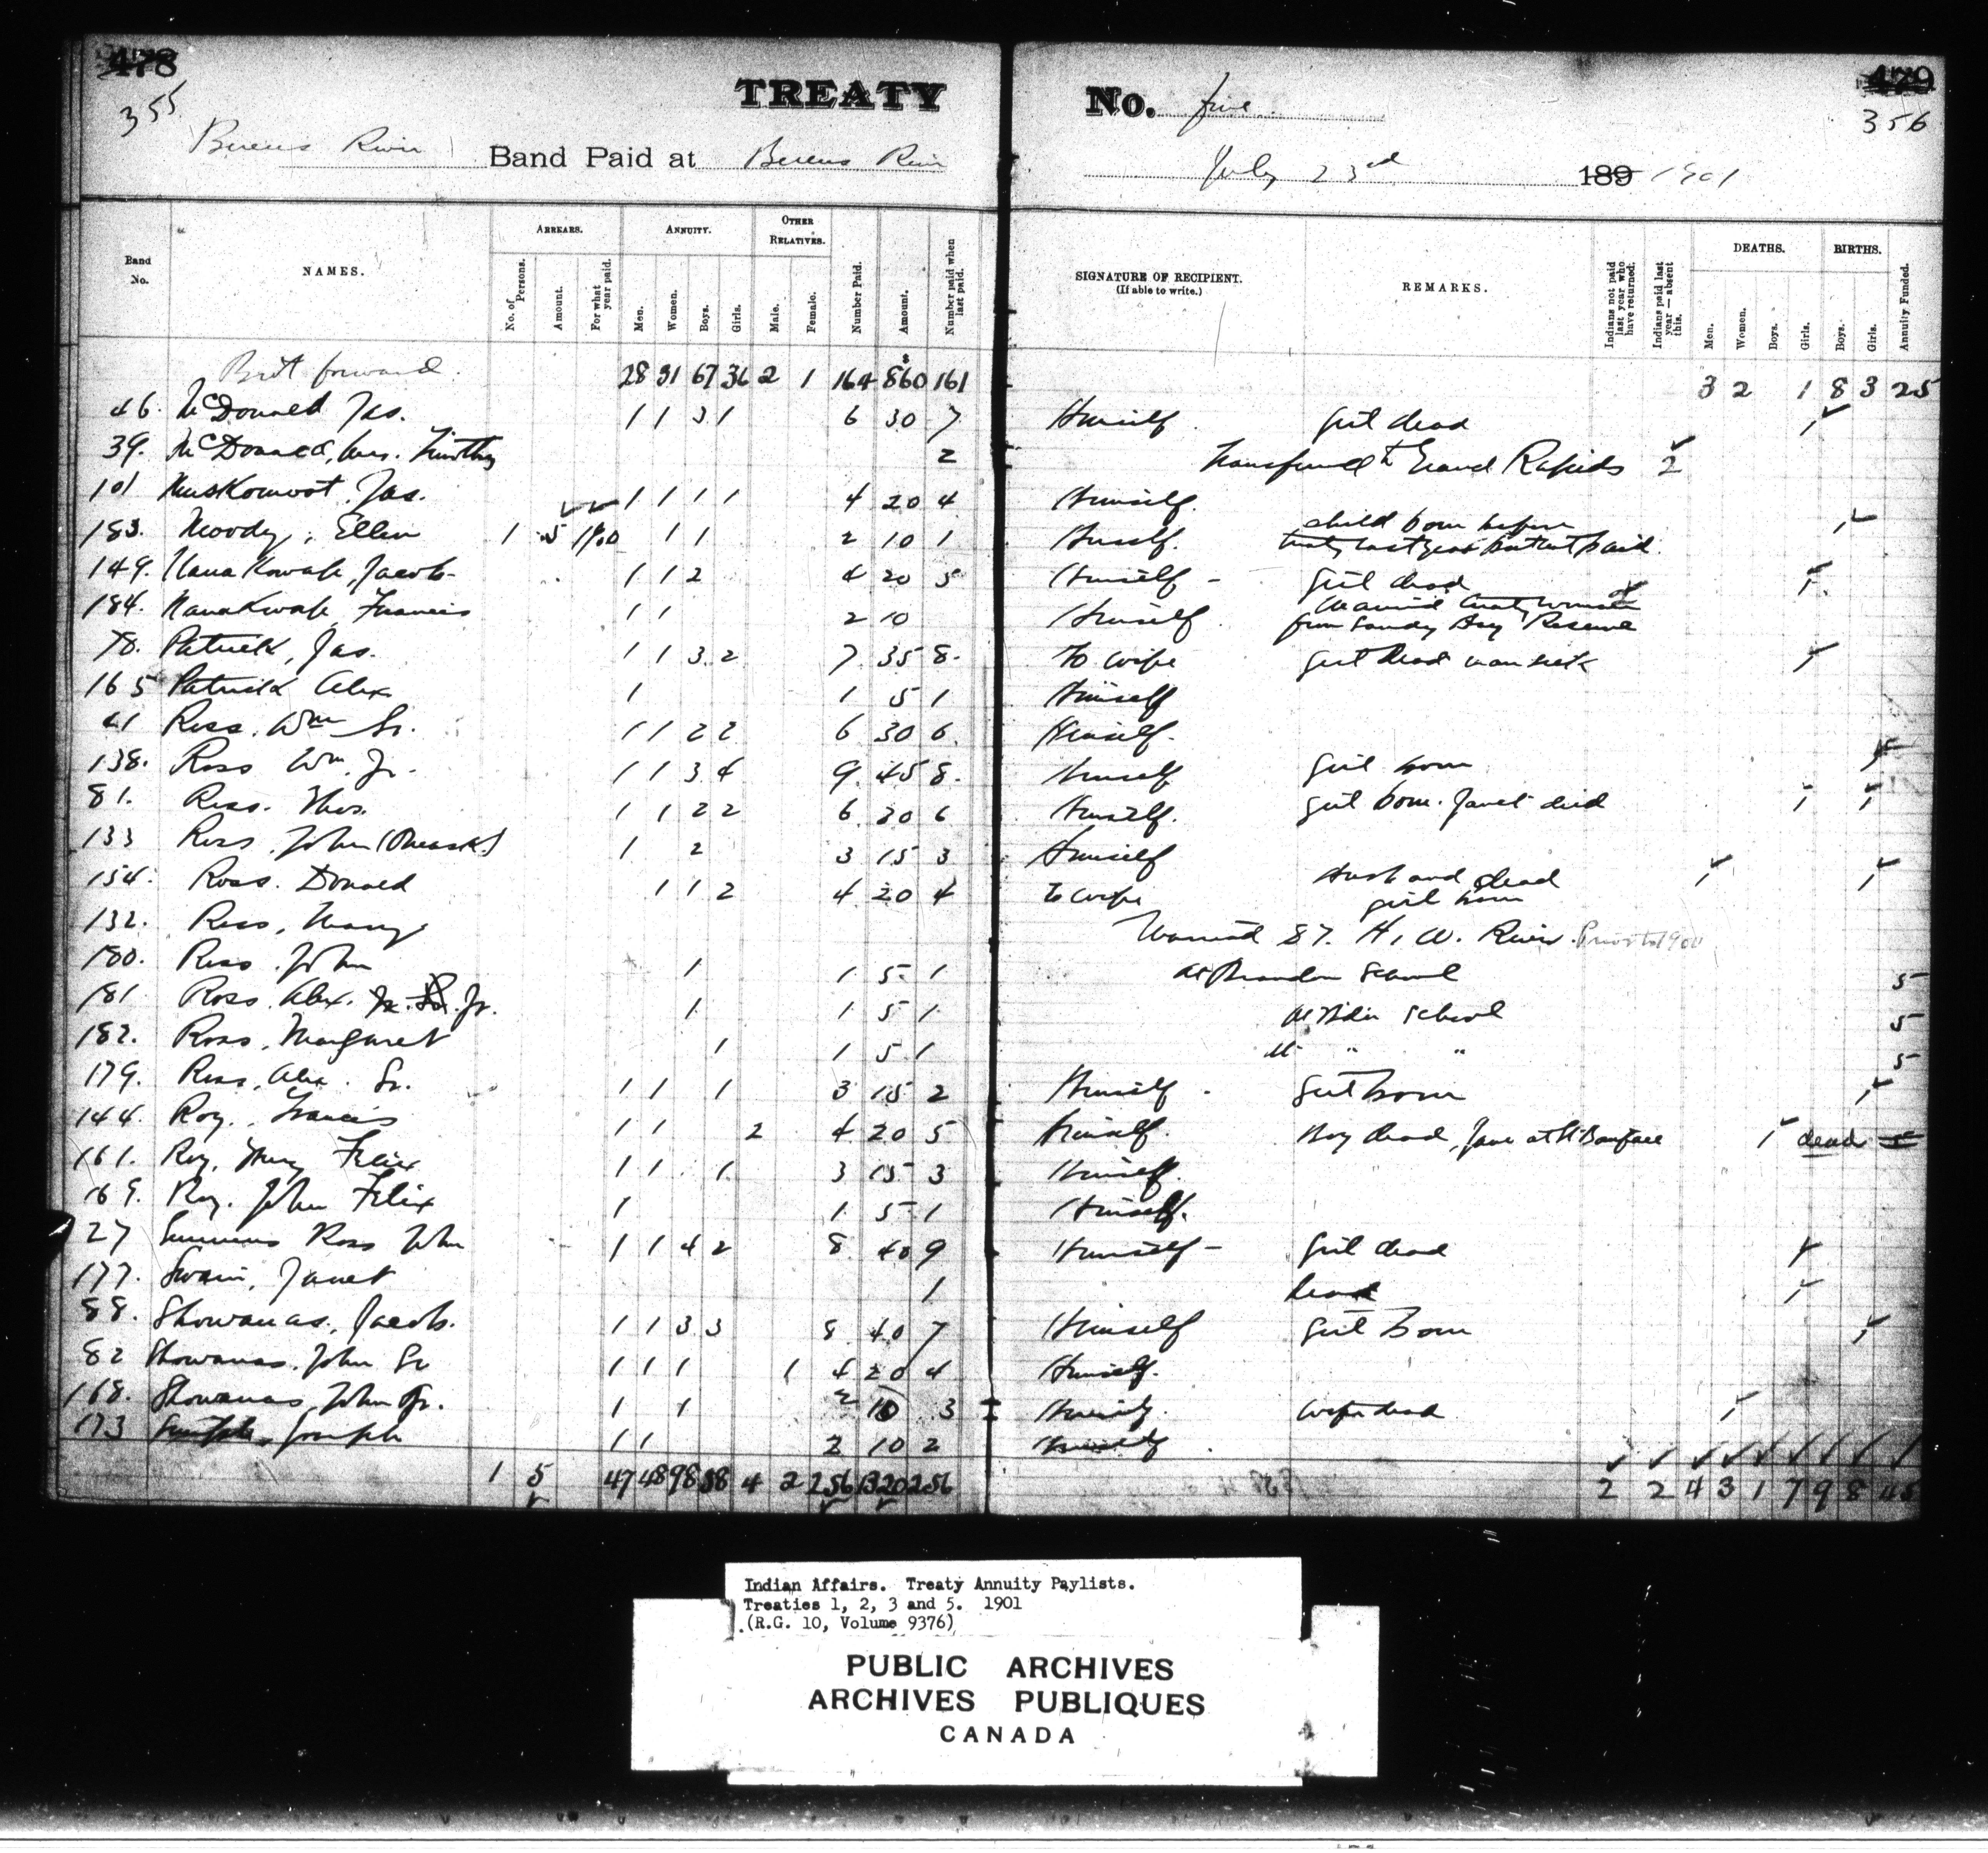 478
355
TREATY No. five
479
356
Berens River Band Paid at Berens River July 23rd 189 1901
Band No.
NAMES.
ARREARS.
No. of Persons.
Amount.
For what year paid.
ANNUITY.
Men.
Women.
Boys.
Girls.
OTHER RELATIVES.
Male.
Female.
Number Paid.
Amount.
Number paid when last paid.
SIGNATURE OF RECIPIENT.
(If able to write.)
REMARKS.
Indians not paid last year who have returned.
Indians paid last year — absent this.
DEATHS.
Men.
Women.
Boys.
Girls.
BIRTHS.
Boys.
Girls.
Annuity Funded.
Brt forward. 28 31 67 36 2 1 164 $860 161 3 2 1 8 3 25
46. McDonald Jas. 1 1 3 1 6 30 7 Himself. Girl dead 1
39. McDonald, Mrs. Timothy 2 Transferred to Grand Rapids 2
101 Jas. 1 1 1 1 4 20 4 Himself.
183. Moody, Ellen 1 5 1900 1 1 2 10 1 Herself. child born before treaty last year but not paid. 1
149. Nanakowap, Jacob 1 1 2 4 20 5 Himself - Girl dead 1
184. Nanakwap, Francis 1 1 2 10 Himself. Married treaty woman from Sandy Bay Reserve
78. Patrick, Jas. 1 1 3 2 7 35 8 To wife Girl dead man sick 1
165 Patrick Alex 1 1 5 1 Himself
41 Ross, Wm Sr. 1 1 2 2 6 30 6 Himself.
138. Ross Wm. Jr. 1 1 3 4 9 45 8 Himself Girl born 1
81. Ross. Thos. 1 1 2 2 6 30 6 Himself. Girl born. Janet died 1 1
133 Ross, John 1 2 3 15 3 Himself
154. Ross. Donald 1 1 2 4 20 4 To wife Husband dead girl born 1 1
132. Ross, Mary Married 87. H. W. River. Prior to 1900
180. Ross. John 1 1 5 1 At Brandon School 5
181 Ross. Alex. Jr. 1 1 5 1 At Indn School 5
182. Ross, Margaret 1 1 5 1 At " " 5
179. Ross, Alex. Sr. 1 1 1 3 15 2 Himself - Girl born 1
144. Roy, Francis 1 1 2 4 20 5 Himself. Boy dead, Jane at St Boniface 1 dead 5
161. Roy, Felix 1 1 1 3 15 3 Himself.
169. Roy. John Felix 1 1 5 1 Himself.
27 Ross John 1 1 4 2 8 40 9 Himself - Girl dead 1
177. Swain, Janet 1 dead 1
88. Showanas, Jacob. 1 1 3 3 8 40 7 Himself Girl Born 1
82 Showanas, John Sr 1 1 1 1 4 20 4 Himself.
168. Showanas, John Jr. 1 1 2 10 3 Himself. wife dead 1
173 Joseph 1 1 2 10 2 Himself.
1 5 47 48 98 58 4 2 256 1320 256 2 2 4 3 1 7 9 8 45
Indian Affairs. Treaty Annuity Paylists.
Treaties 1, 2, 3 and 5. 1901
(R.G. 10, Volume 9376)
PUBLIC ARCHIVES
ARCHIVES PUBLIQUES
CANADA